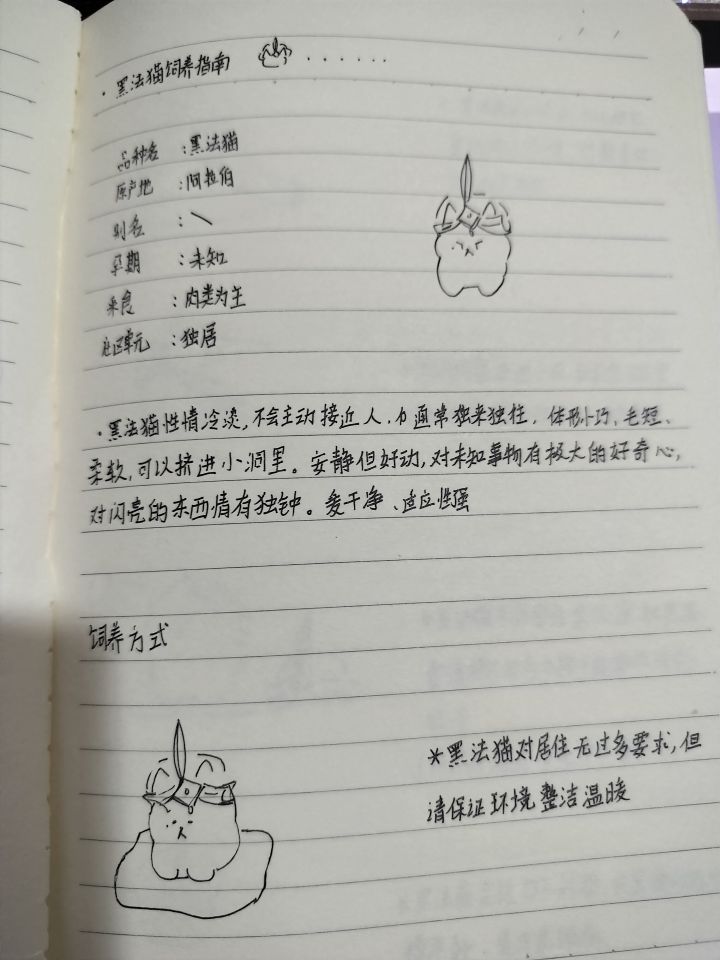 ·黑法猫饲养指南 ······
品种名 :黑法猫
原产地 :阿拉伯
别名 :\
早期 :未知
采食 :肉类为主
社区单元 :独居
·黑法猫性情冷淡,不会主动接近人,通常独来独往,体形小巧、毛短、
柔软,可以挤进小洞里。安静但好动,对未知事物有极大的好奇心,
对闪亮的东西情有独钟。爱干净、适应性强
饲养方式
*黑法猫对居住无过多要求,但
请保证环境整洁温暖